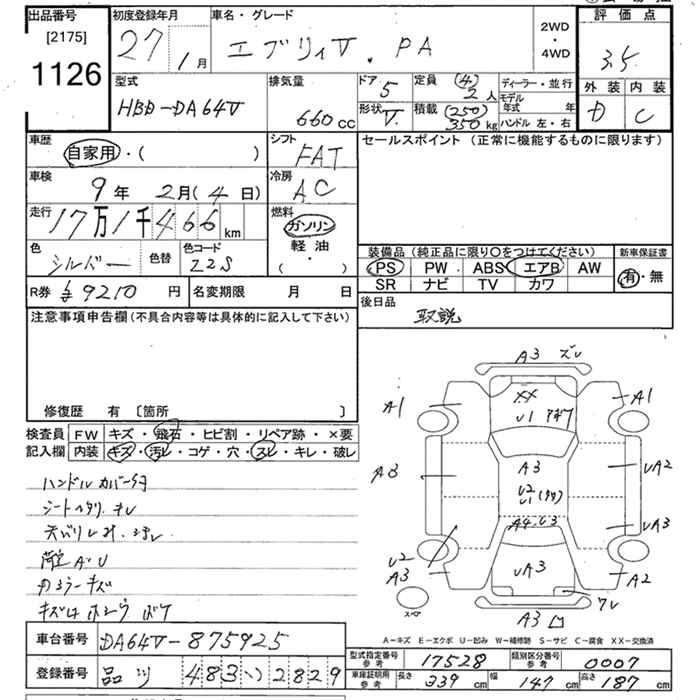 出品番号
[2175]
1126
初度登録年月
27 1月
車名・グレード
エブリィV. PA
2WD
・
4WD
評価点
3.5
外装 内装
D C
型式
HBD-DA64V
排気量
660cc
ドア 5
形状 V.
定員 (4)
2人
積載 (250)
350kg
ディーラー・並行
モデル
年式 年
ハンドル 左・右
車歴
自家用・( )
シフト
FAT
車検
9年 2月(4日)
冷房
AC
走行
17万1千466km
燃料
ガソリン
軽油
( )
色
シルバー
色替
色コード
Z2S
R券 ¥9210円
名変期限 月 日
セールスポイント (正常に機能するものに限ります)
装備品 (純正品に限り○をつけてください)
新車保証書
PS PW ABS エアB AW
SR ナビ TV カワ
有・無
後日品
取説
注意事項申告欄(不具合内容等は具体的に記入して下さい)
修復歴 有 〔箇所 〕
検査員
記入欄
FW キズ・飛石・ヒビ割・リペア跡・×要
内装 キズ・汚レ・コゲ・穴・スレ・キレ・破レ
ハンドルカバー付
シートヘタリ. キレ
荷室A.U
内張ラーキズ
車台番号 DA64V-875925
登録番号 品川 483 い 2829
A3 ズレ
XX
A1
U1
A1
A3
A3
U2
U1
UA2
A4.U3
UA3
U2
A3
UA3
A2
スペア
A3
A-キズ E-エクボ U-凹み W-補修跡 S-サビ C-腐食 XX-交換済
型式指定番号
参考
17528
類別区分番号
参考
0007
車庫証明用
参考
長さ 339cm
幅 147cm
高さ 187cm